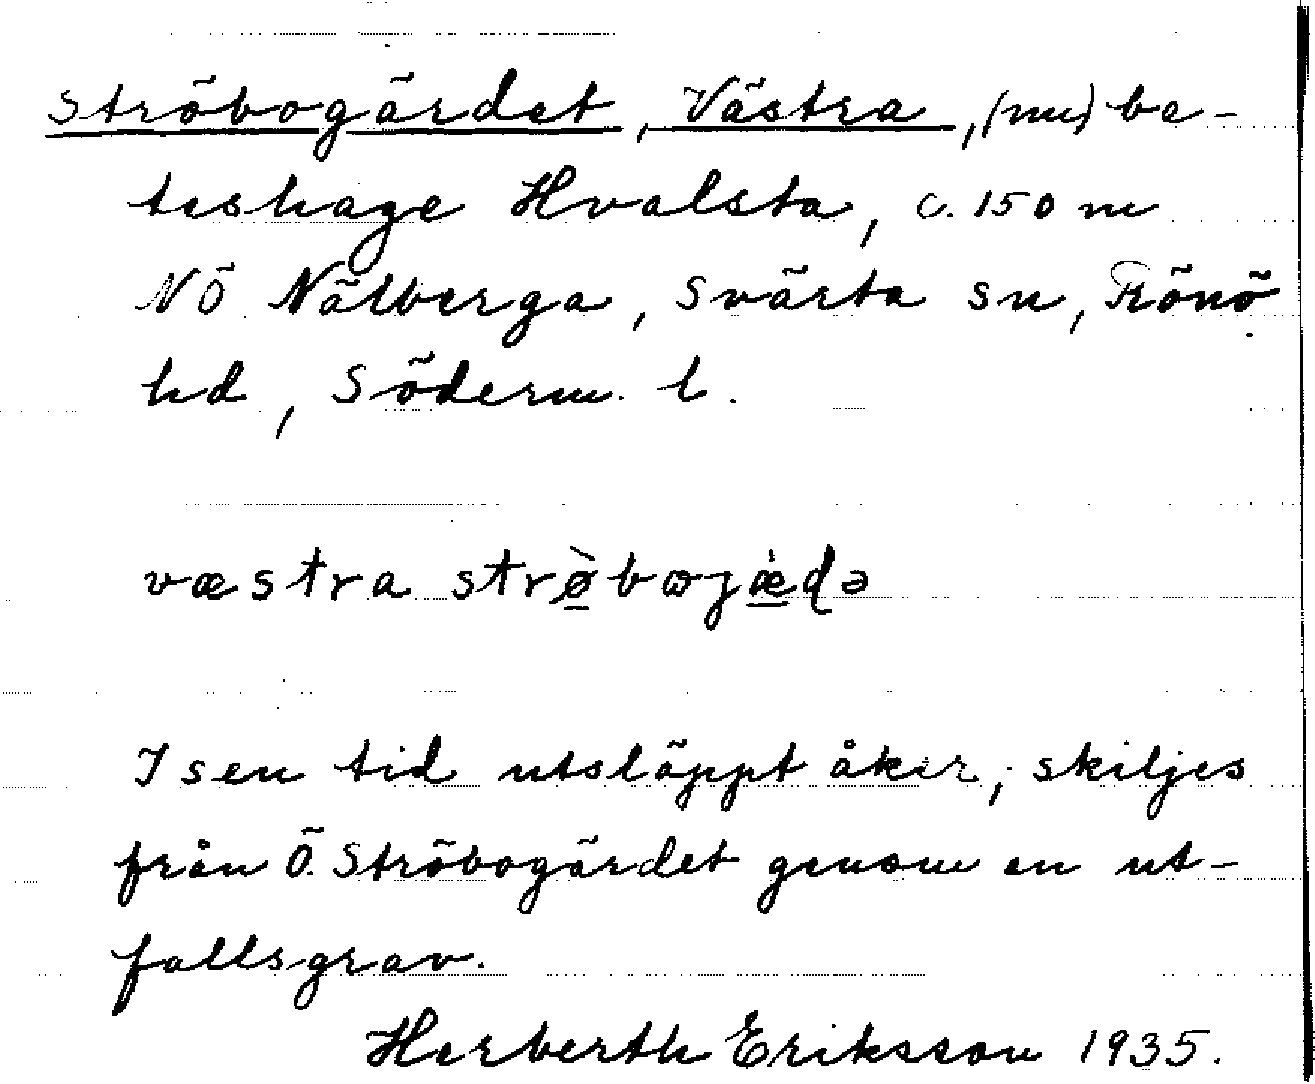 Ströbogärdet, Västra, (nu) be-
teshage Hvalsta, c. 150 m
NÖ Nälberga, Svärta sn, Rönö
hd, Söderm. l.
væstra strø̀bωjæ̀ḍə
I sen tid utsläppt åker, skiljes
från Ö. Ströbogärdet genom en ut-
fallsgrav.
Herberth Eriksson 1935.